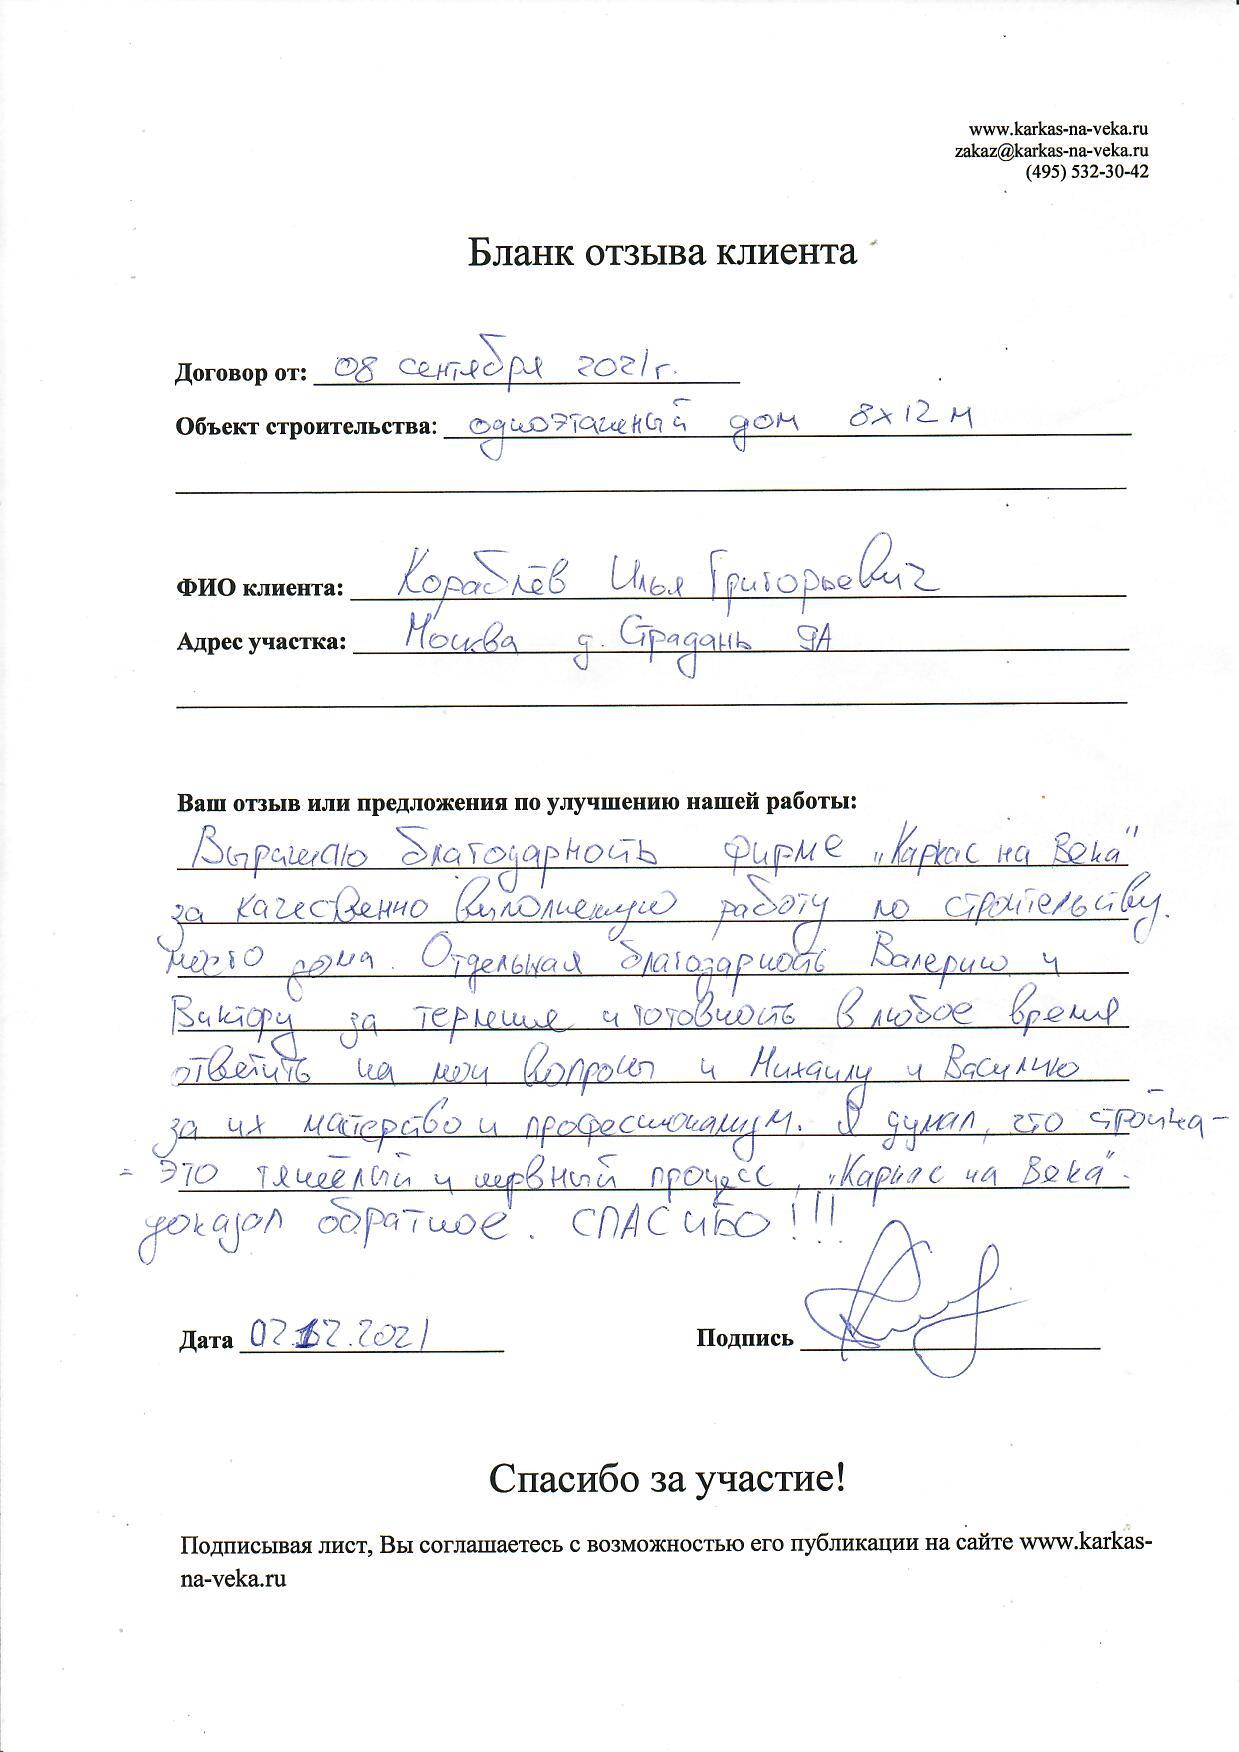 www.karkas-na-veka.ru
zakaz@karkas-na-veka.ru
(495) 532-30-42
Бланк отзыва клиента
Договор от: 08 сентября 2021г.
Объект строительства: одноэтажный дом 8х12 м
ФИО клиента: Кораблёв Илья Григорьевич
Адрес участка: Москва д. Страдань 9А
Ваш отзыв или предложения по улучшению нашей работы:
Выражаю благодарность фирме „Каркас на Века"
за качественно выполненную работу по строительству.
моего дома. Отдельная благодарность Валерию и
Виктору за терпение и готовность в любое время
ответить на мои вопросы и Михаилу и Василию
за их мастерство и профессионализм. Я думал, что стройка -
- это тяжёлый и нервный процесс, „Каркас на Века".
доказал обратное. СПАСИБО!!!
Дата 02.12.2021
Подпись
Спасибо за участие!
Подписывая лист, Вы соглашаетесь с возможностью его публикации на сайте www.karkas-
na-veka.ru